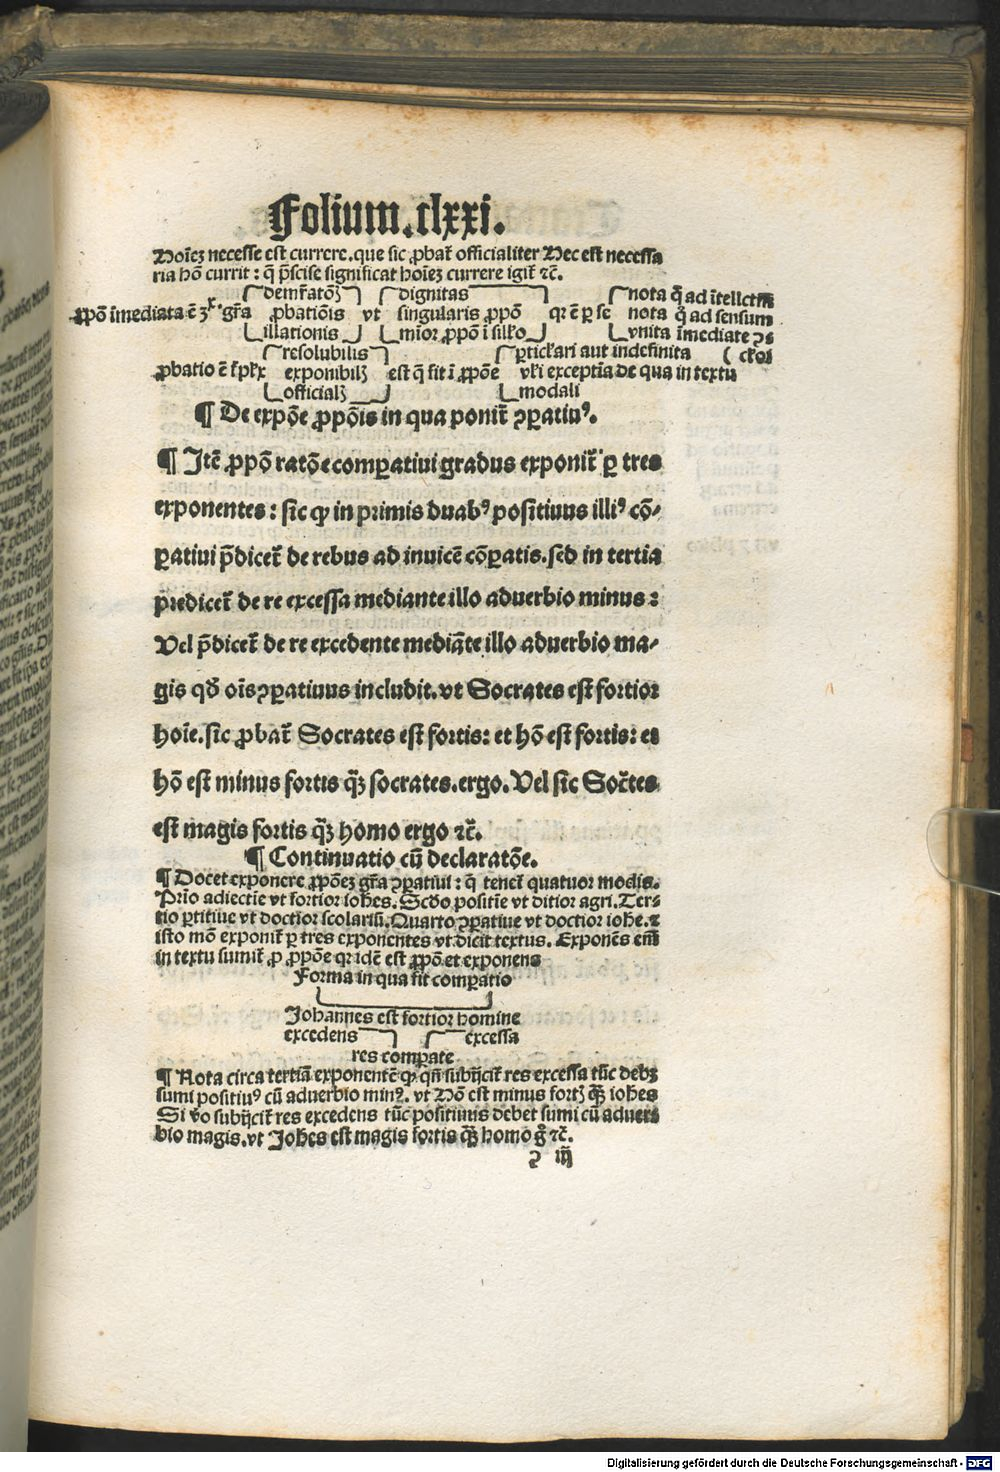 Folium.clxxi.
Hoīeꝫ necesse est currere.que sic ꝓbat̄ officialiter Hec est necessa
ria hō currit : q̄ p̄scise significat hoīeꝫ currere igit̄ ⁊c̄.
demr̄atōꝫ dignitas nota q̄ ad ītellctm
ꝓpō īmediata ē ꝫ gr̄a ꝓbatiōis vt singularis ꝓpō qr ē ꝑ se nota q̄ ad sensum
illationis mīor ꝓpō ī silr̄o vnita īmediate
resolubilis ꝑticlari aut indefinita
ꝓbatio ē exponibilꝫ est q̄ fit ī ꝓpōe vl̄i exceptia de qua in textu
officialꝫ modali
¶ De expōe ꝓpōis in qua ponit̄ ꝯꝑatiuꝰ.
¶ Itē ꝓpō ratōe comꝑatiui gradus exponit̄ ꝑ tres
exponentes : sic ꝙ in primis duabꝰ positiuus illiꝰ cō-
ꝑatiui p̄dicet̄ de rebus ad inuicē cōꝑatis.sed in tertia
predicet̄ de re excessa mediante illo aduerbio minus :
Vel p̄dicet̄ de re excedente mediāte illo aduerbio ma-
gis qđ oīs ꝯꝑatiuus includit.vt Socrates est fortior
hoīe.sic ꝓbat̄ Socrates est fortis: et hō est fortis: et
hō est minus fortis q̄ꝫ socrates.ergo.Vel sic Soc̄tes
est magis fortis q̄ꝫ homo ergo ⁊c̄.
¶ Continuatio cū declaratōe.
¶ Docet exponere ꝓpōeꝫ gr̄a ꝯꝑatiui : q̄ tenet̄ quatuor modis.
Prīo adiectie vt fortior ioh̄es. Scđo positie vt ditior agri. Ter-
tio ꝑtitiue vt doctior scolariū. Quarto ꝯꝑatiue vt doctior ioh̄e. ⁊
isto mō exponit̄ ꝑ tres exponentes vt dicit textus. Exponēs em̄
in textu sumit̄ ꝓ ꝓpōe qr idē est ꝓpō et exponens
Forma in qua fit comꝑatio
Johannes est fortior homine
excedens excessa
res comꝑate
¶ Nota circa tertiā exponentē ꝙ qn̄ subijcit̄ res excessa tūc debꝫ
sumi positiuꝰ cū aduerbio minꝰ. vt Hō est minus fortꝫ q̄ꝫ ioh̄es
Si v̄o subijcit̄ res excedens tūc positiuus debet sumi cū aduer
bio magis.vt Joh̄es est magis fortis q̄ꝫ homo g̊ ⁊c̄.
iij
Digitalisierung gefördert durch die Deutsche Forschungsgemeinschaft - DFG